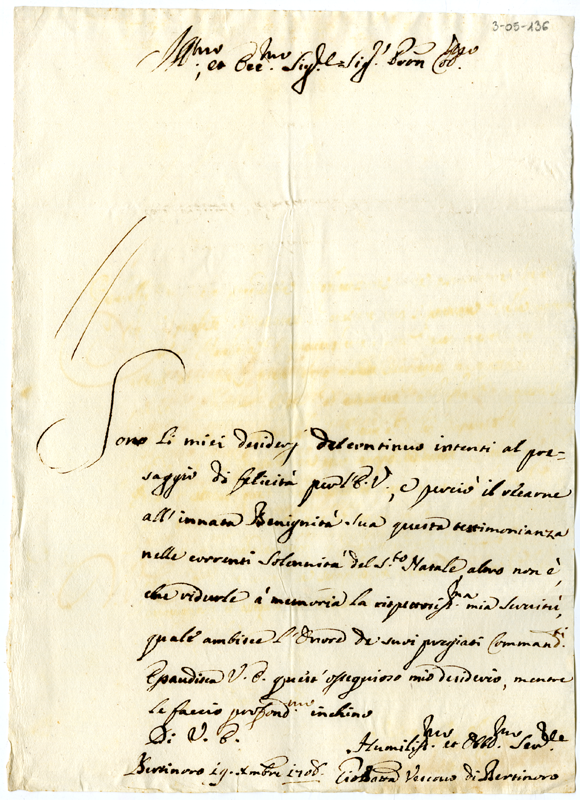 3-05-136
Ill.mo, et Ecc.mo Sig.r Sig.r Pron Col.mo
Sono li miei desiderj del continuo intenti al pre=
saggio di felicità per l'E. V., e perciò il
all'innata Benignità Sua questa testimonianza
nelle correnti Solennità del S.to Natale, altro non è,
che ridurle à memoria la rispettosis.ma mia Servitù,
quale ambisce l'Onore de suoi pregiati Command.ti
Epaudisca V. E. quest'ossequioso mio desiderio, mentre
le faccio profond.mo inchino
Di V. E.
Humiliss.mo et Obb.mo Ser.re
Bertinoro 19. Xmbre 1706. Gio Batta Vescovo di Bertinoro